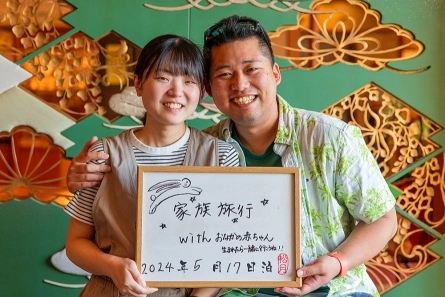 家族旅行
with おなかの赤ちゃん
生まれたら一緒に行こうね!!
2024年5月17日泊
松月